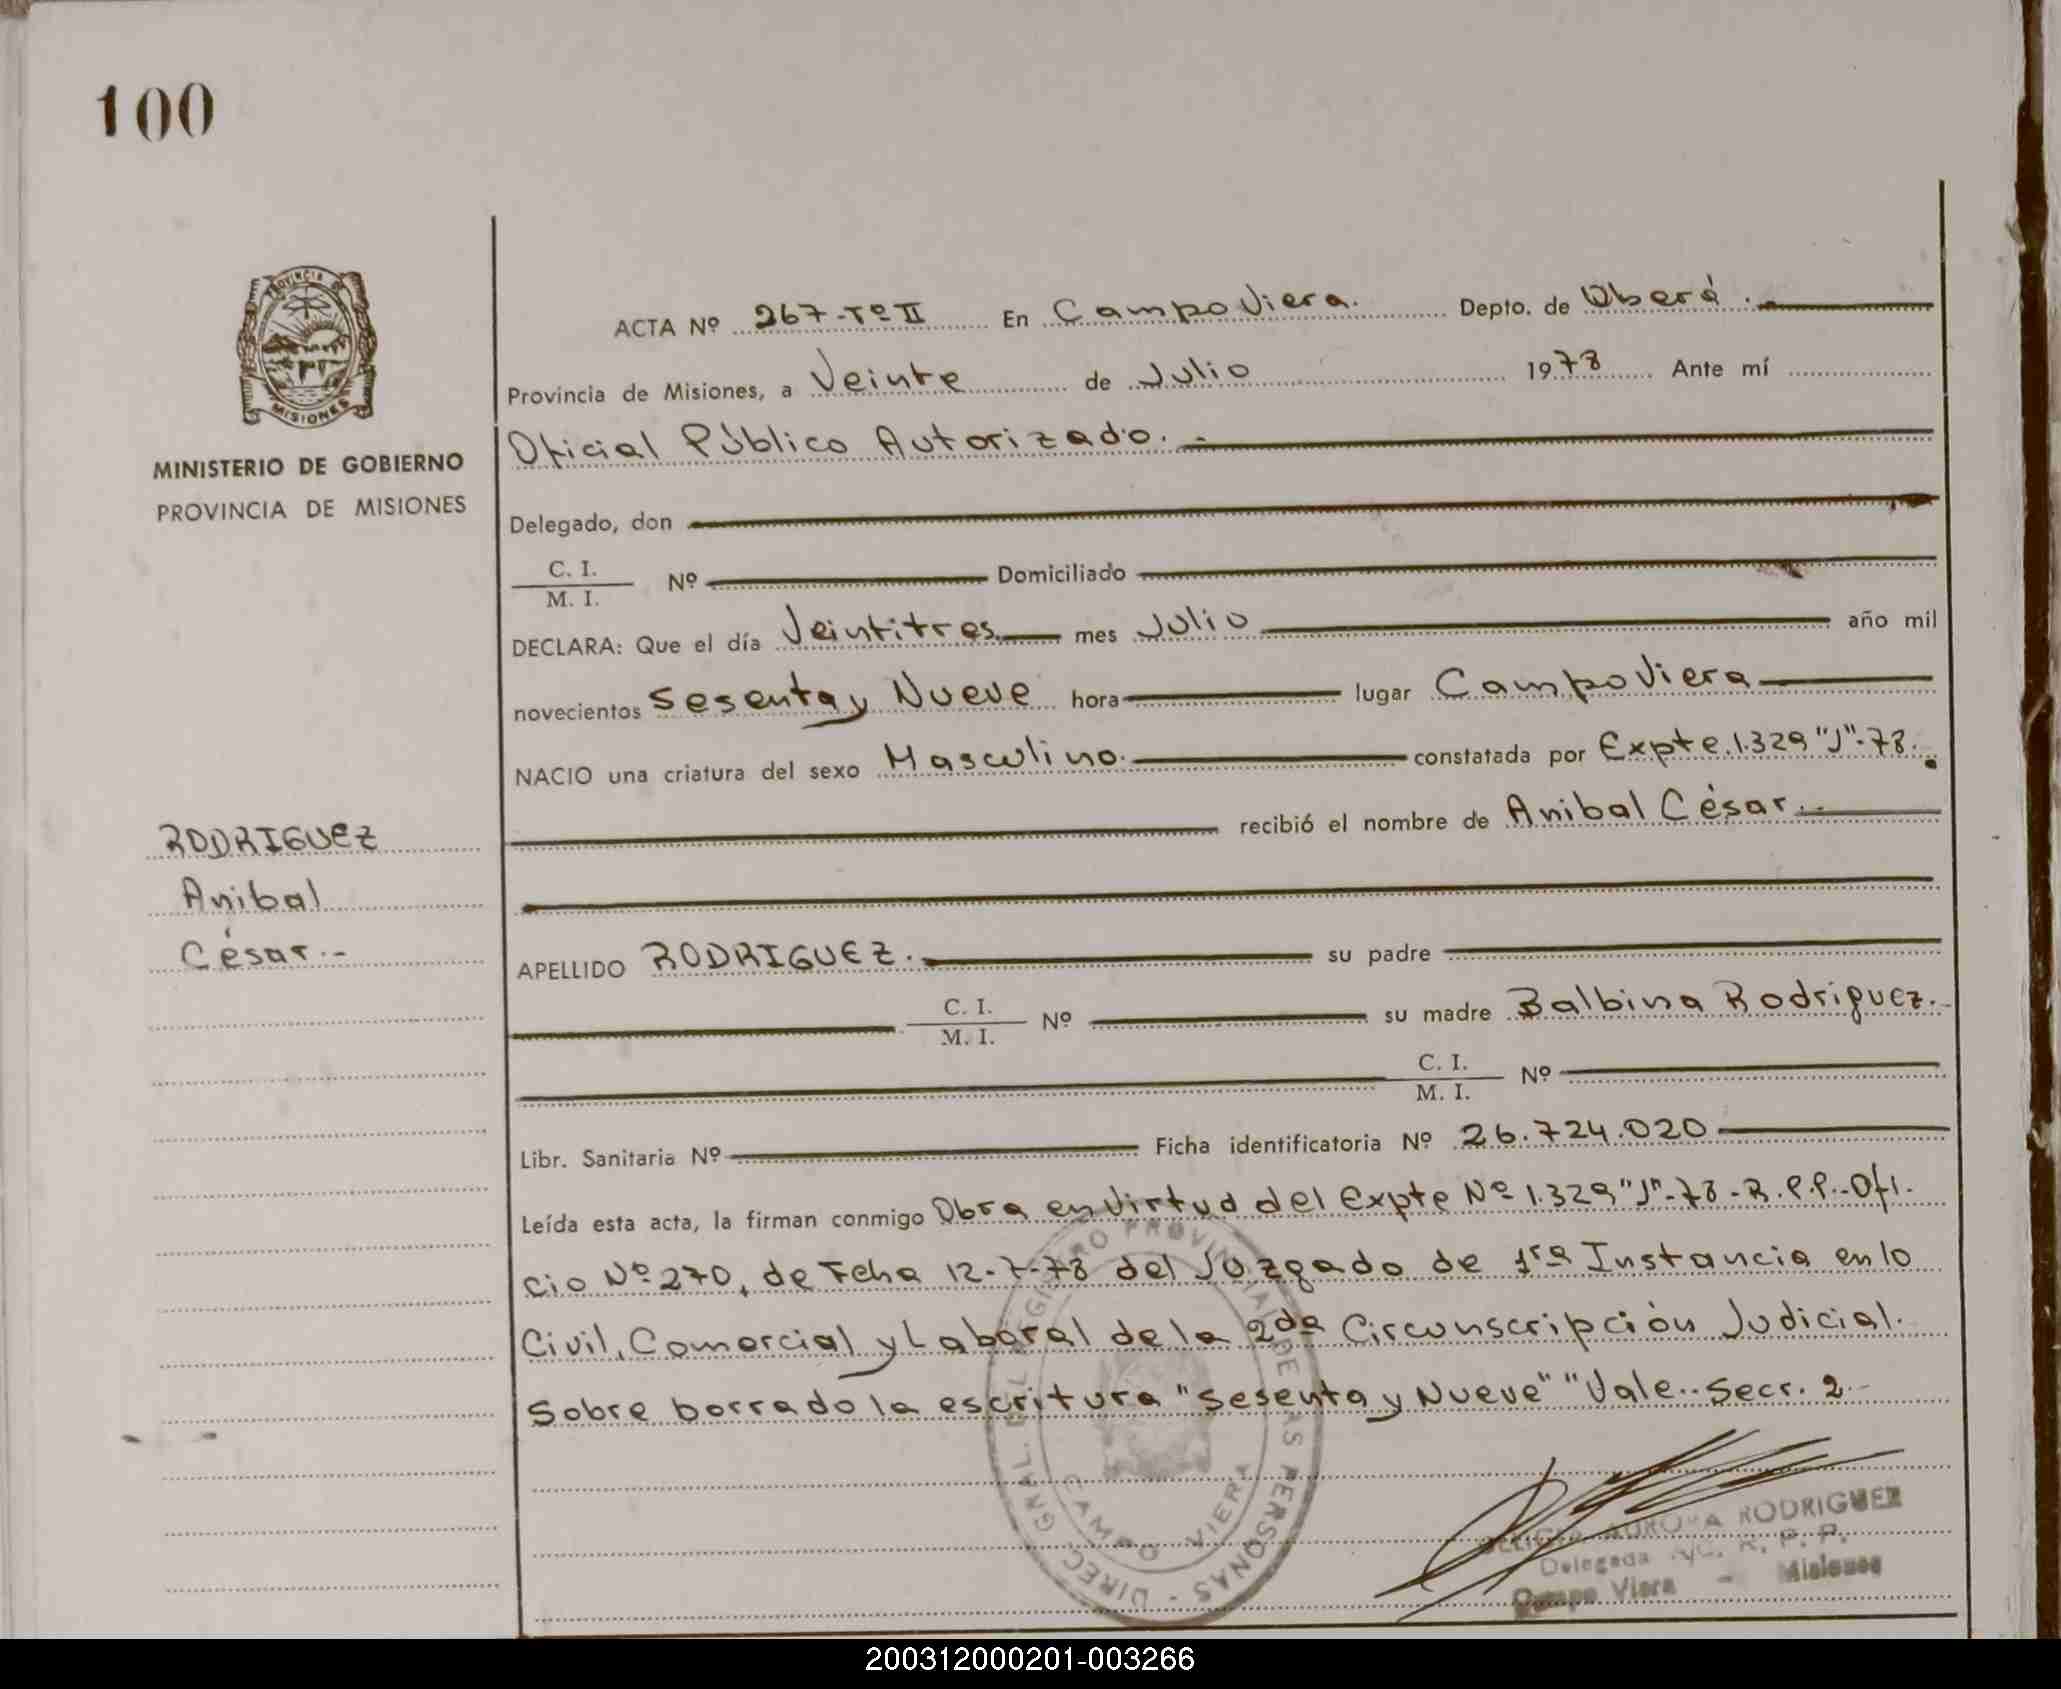 100
PROVINCIA DE
MISIONES
MINISTERIO DE GOBIERNO
PROVINCIA DE MISIONES
RODRIGUEZ
Anibal
César.-
ACTA Nº 267-Tº II En Campo Viera. Depto. de Oberá.
Provincia de Misiones, a Veinte de Julio 1978 Ante mí
Oficial Público Autorizado.-
Delegado, don
C. I.
M. I.
Nº Domiciliado
DECLARA: Que el día Veintitres mes Julio año mil
novecientos Sesenta y Nueve hora lugar Campo Viera
NACIO una criatura del sexo Masculino. constatada por Expte.1.329"J"-78.
recibió el nombre de Anibal César.-
APELLIDO RODRIGUEZ. su padre
C. I.
M. I.
Nº su madre Balbina Rodriguez.-
C. I.
M. I.
Nº
Libr. Sanitaria Nº Ficha identificatoria Nº 26.724.020
Leída esta acta, la firman conmigo Obra en Virtud del Expte Nº 1.329"J"-78-R.P.P.-Ofi-
cio Nº 270, de Fcha 12-7-78 del Juzgado de 1ra Instancia en lo
Civil, Comercial y Laboral de la 2da Circunscripción Judicial.
Sobre borrado la escritura "Sesenta y Nueve" "Vale.. Secc. 2.-
DIREC. GRAL. DEL REGISTRO PROVINCIAL DE LAS PERSONAS -
CAMPO VIERA
AURORA RODRIGUEZ
Delegada R. P. P.
Campo Viera - Misiones
200312000201-003266